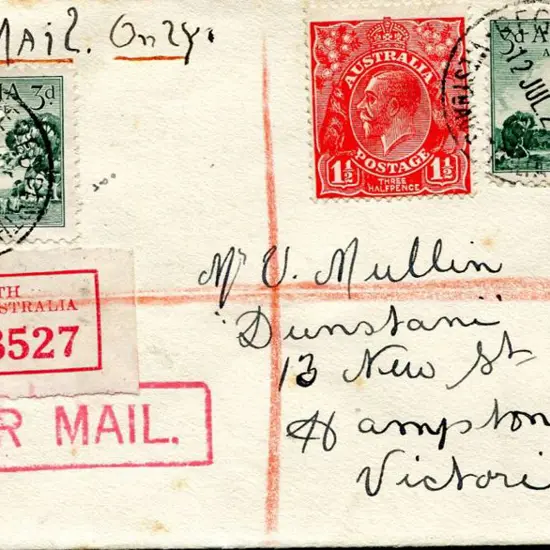 MAIL. ONLY.
IA 3d
AUSTRALIA
1½ 1½
POSTAGE
THREE
HALFPENCE
3d A
12 JUL 2
TH
STRALIA
3527
R MAIL.
Mr V. Mullin
"Dunstan"
13 New St
Hampton
Victori